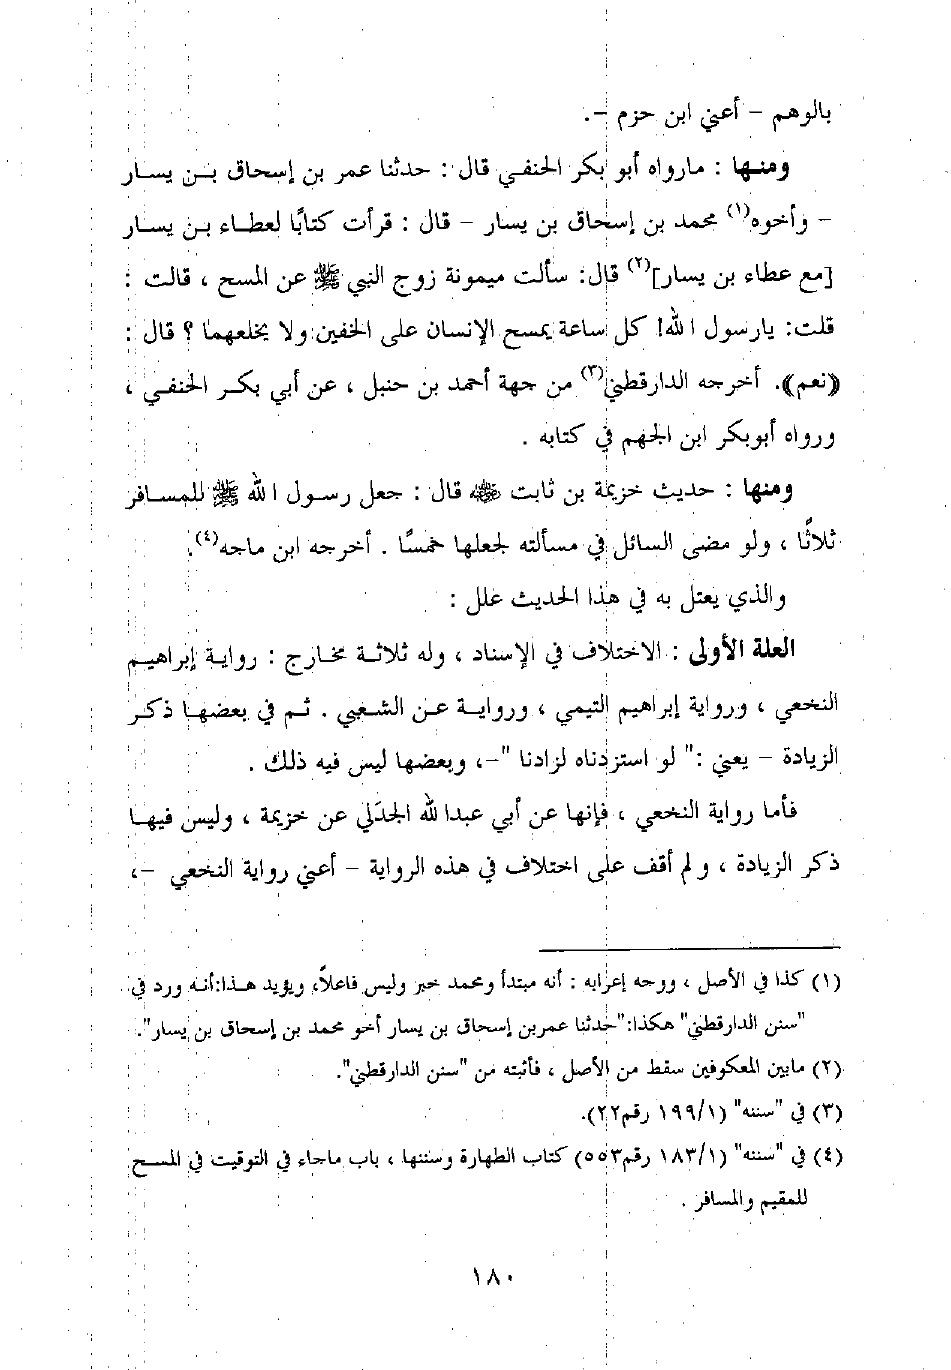 بالوهم – أعني ابن حزم –.
ومنـها : مارواه أبو بكر الحنفـي قال : حدثنا عمر بن إسحاق بـن يسار
– وأخوه(١) محمد بن إسحاق بن يسار – قال : قرأت كتابًا لعطـاء بـن يسـار
[مع عطاء بن يسار](٢) قال: سألت ميمونة زوج النبي ﷺ عن المسح ، قالت :
قلت: يارسول الله! كل ساعة يمسح الإنسان على الخفين ولا يخلعهما ؟ قال :
((نعم)). أخرجه الدارقطني(٣) من جهة أحمد بن حنبل ، عن أبي بكـر الحنفـي ،
ورواه أبوبكر ابن الجهم في كتابه .
ومنها : حديث خزيمة بن ثابت ﷺ قال : جعل رسـول الله ﷺ للمسـافر
ثلاثًا ، ولو مضى السائل في مسألته لجعلها خمسًا . أخرجه ابن ماجه(٤).
والذي يعتل به في هذا الحديث علل :
العلة الأولى : الاختلاف في الإسناد ، وله ثلاثـة مخـارج : روايـة إبراهيـم
النخعي ، ورواية إبراهيم التيمي ، وروايـة عـن الشـعبي . ثـم في بعضهـا ذكـر
الزيادة – يعني :" لو استزدناه لزادنا "–، وبعضها ليس فيه ذلك .
فأما رواية النخعي ، فإنها عن أبي عبدالله الجدَلي عن خزيمة ، وليس فيهـا
ذكر الزيادة ، ولم أقف على اختلاف في هذه الرواية – أعني رواية النخعي –،
(١) كذا في الأصل ، ووجه إعرابه : أنه مبتدأ ومحمد خبر وليس فاعلاً، ويؤيد هـذا:أنـه ورد في
"سنن الدارقطني" هكذا:"حدثنا عمربن إسحاق بن يسار أخو محمد بن إسحاق بن يسار".
(٢) مابين المعكوفين سقط من الأصل ، فأثبته من "سنن الدارقطني".
(٣) في "سننه" (١/١٩٩ رقم٢٢).
(٤) في "سننه" (١/١٨٣ رقم٥٥٣) كتاب الطهارة وسننها ، باب ماجاء في التوقيت في المسـح
للمقيم والمسافر .
١٨٠